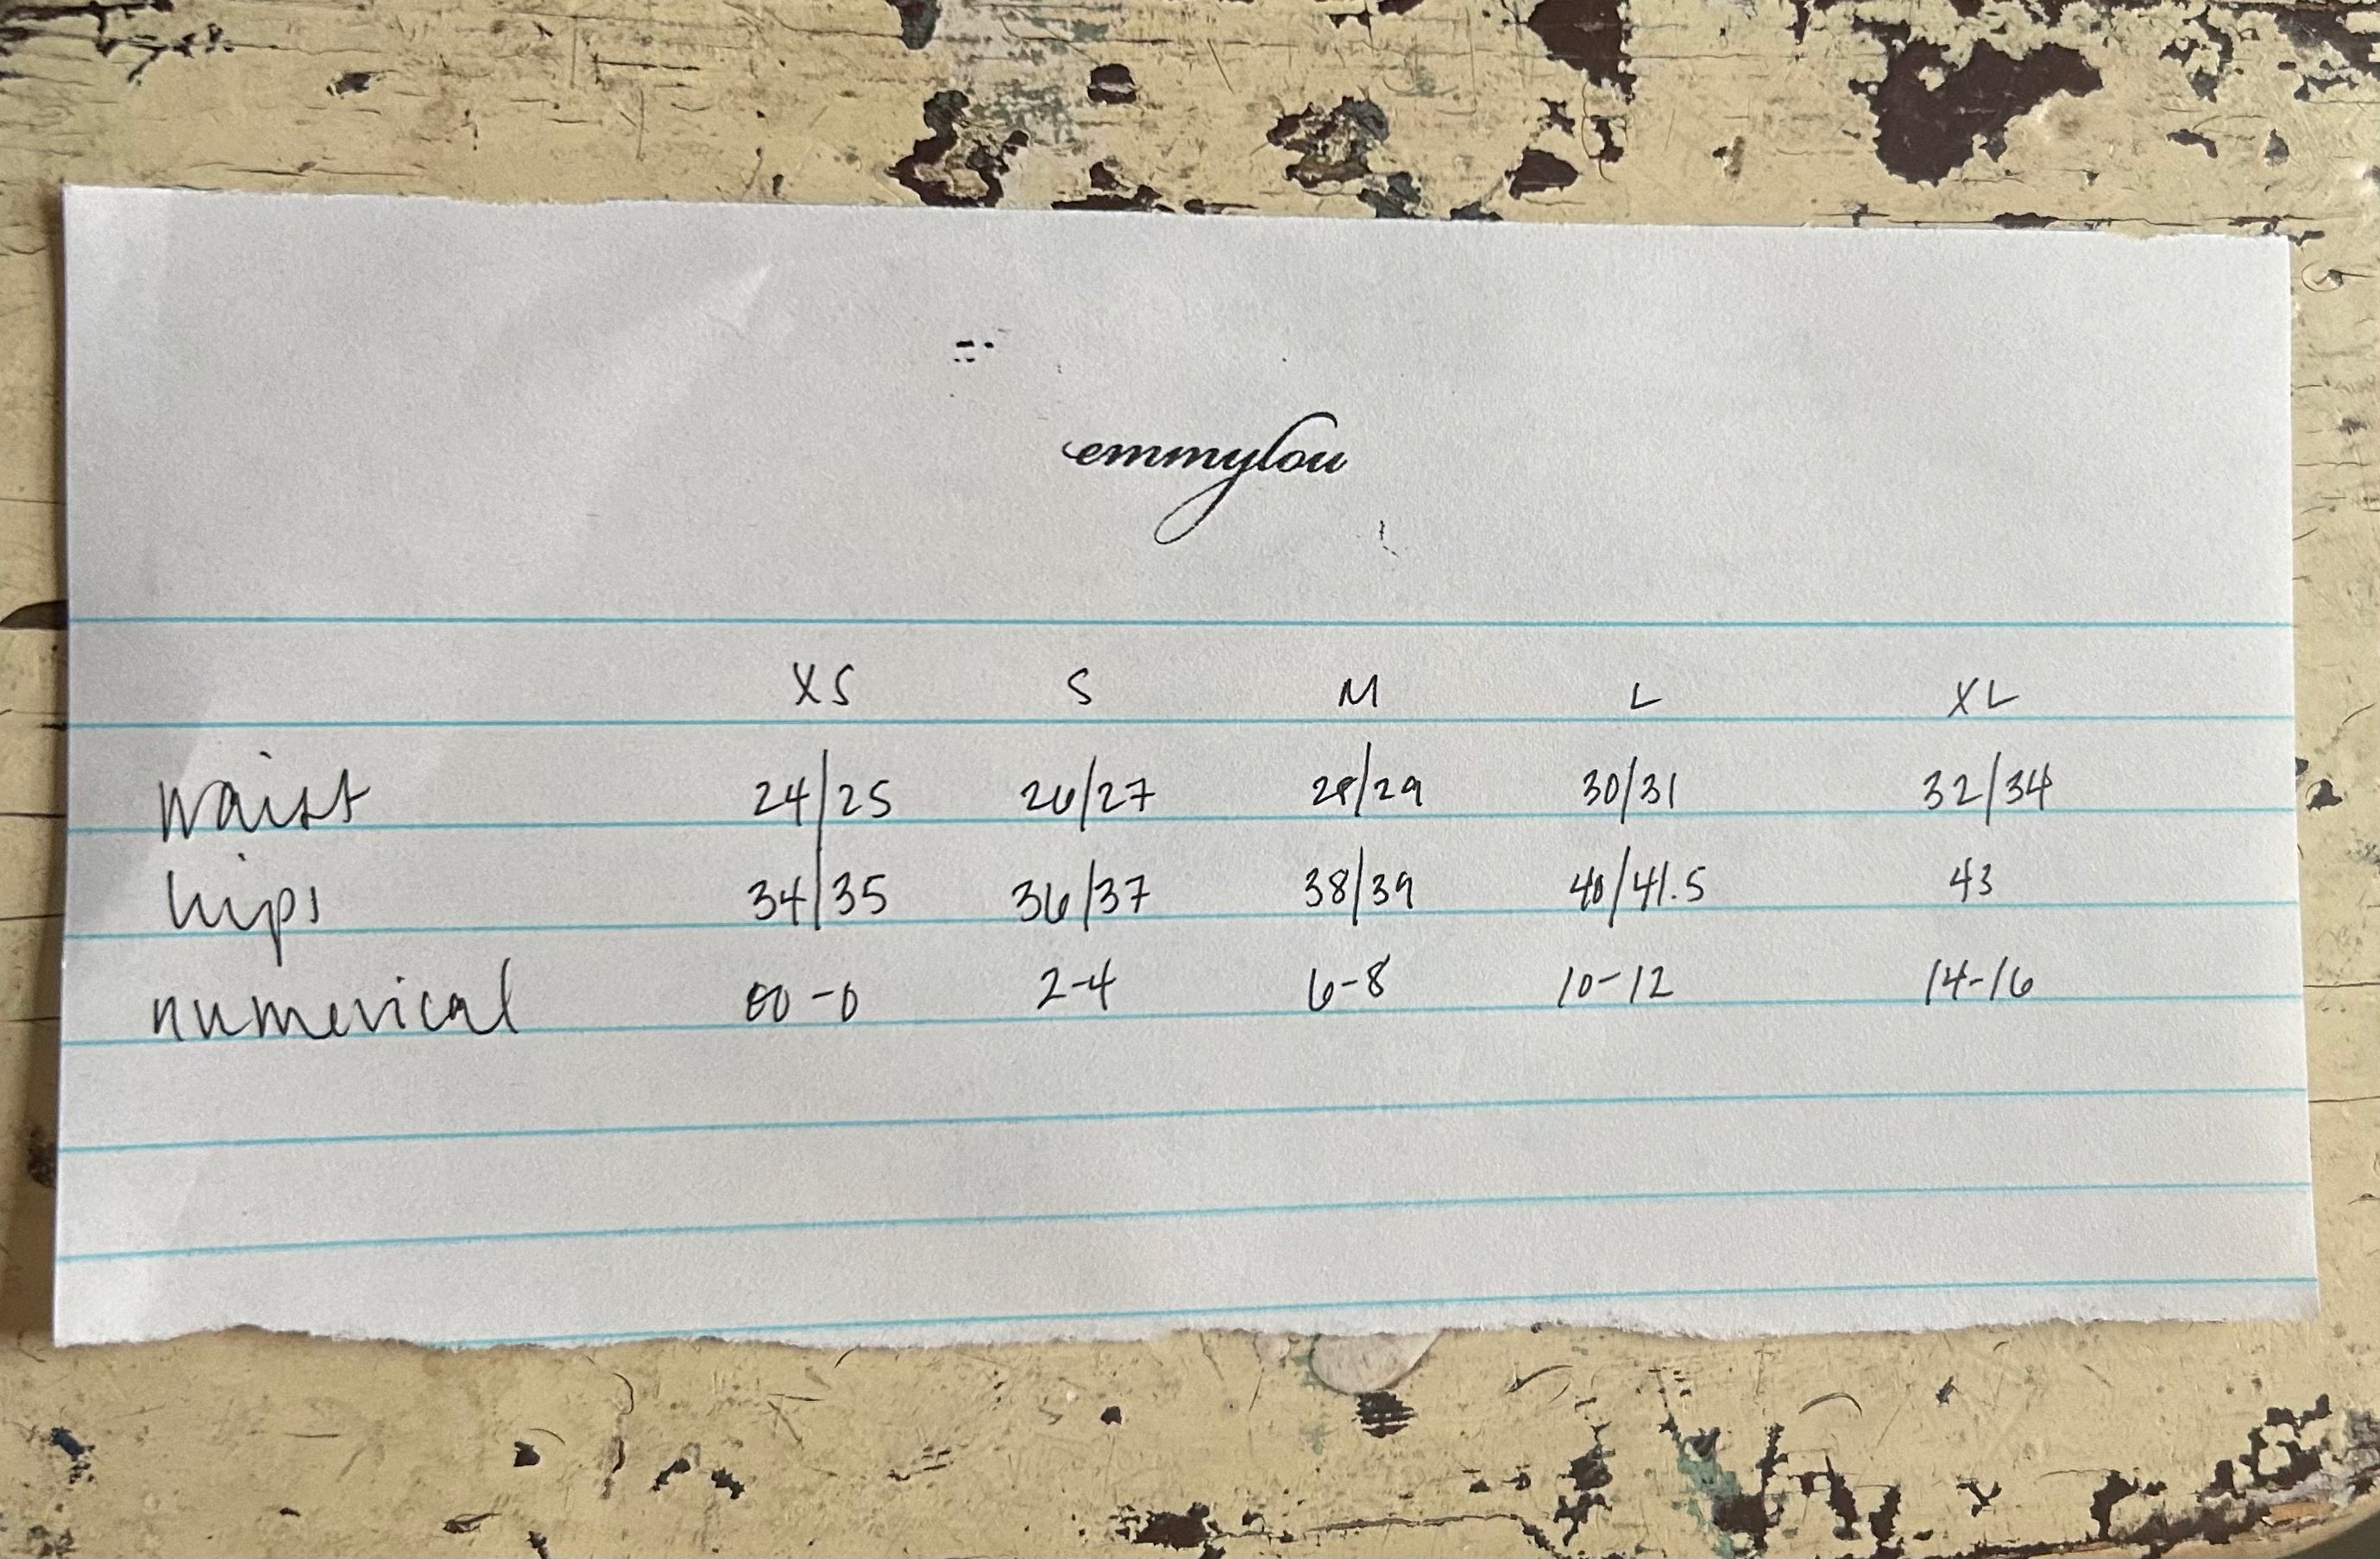 emmylou
XS S M L XL
waist 24/25 26/27 28/29 30/31 32/34
hips 34/35 36/37 38/39 40/41.5 43
numerical 00-0 2-4 6-8 10-12 14-16